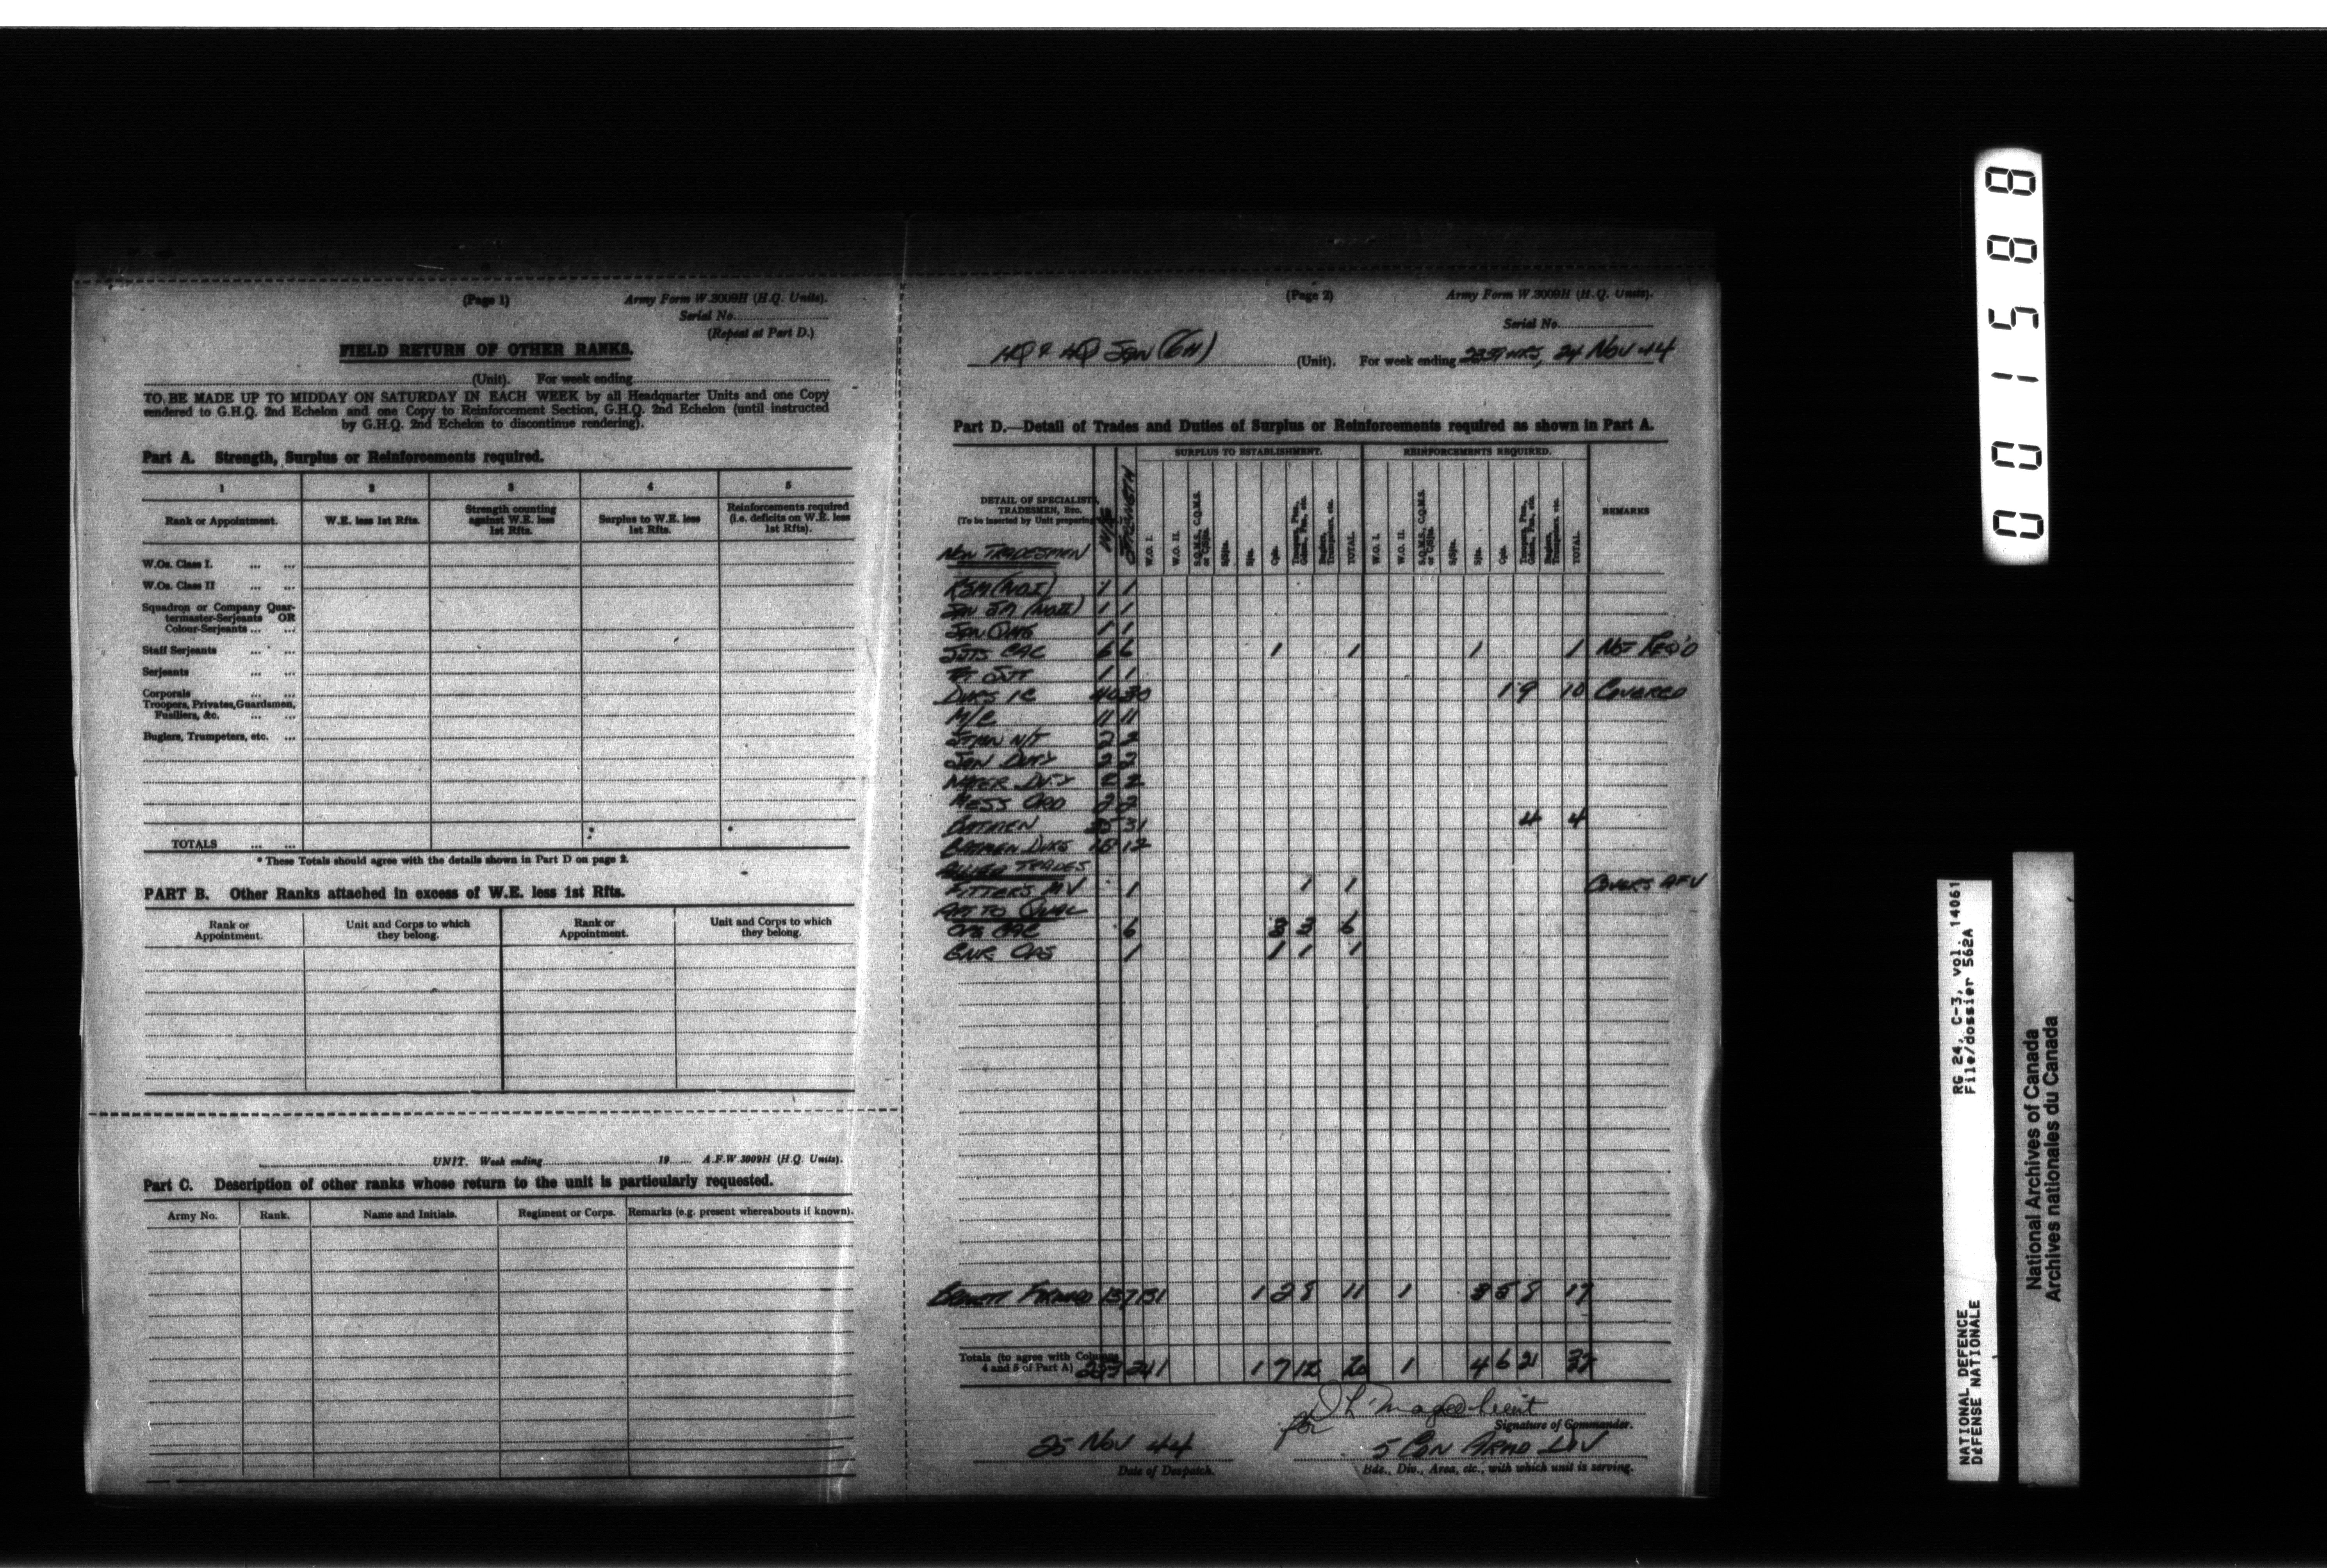 (Page 1)
Army Form W.3009H (H.Q. Units).
Serial No.
(Repeat at Part D.)
FIELD RETURN OF OTHER RANKS.
(Unit). For week ending
TO BE MADE UP TO MIDDAY ON SATURDAY IN EACH WEEK by all Headquarter Units and one Copy
rendered to G.H.Q. 2nd Echelon and one Copy to Reinforcement Section, G.H.Q. 2nd Echelon (until instructed
by G.H.Q. 2nd Echelon to discontinue rendering).
Part A. Strength, Surplus or Reinforcements required.
1 2 3 4 5
Rank or Appointment. W.E. less 1st Rfts. Strength counting against W.E. less 1st Rfts. Surplus to W.E. less 1st Rfts. Reinforcements required (i.e. deficits on W.E. less 1st Rfts).
W.Os. Class I. ... ...
W.Os. Class II ... ...
Squadron or Company Quar-
termaster-Serjeants OR
Colour-Serjeants ... ...
Staff Serjeants ... ...
Serjeants ... ...
Corporals ... ...
Troopers, Privates, Guardsmen,
Fusiliers, &c. ... ...
Buglers, Trumpeters, etc. ...
TOTALS ... ... * *
* These Totals should agree with the details shown in Part D on page 2.
PART B. Other Ranks attached in excess of W.E. less 1st Rfts.
Rank or Appointment. Unit and Corps to which they belong. Rank or Appointment. Unit and Corps to which they belong.
UNIT. Week ending 19 A.F.W.3009H (H.Q. Units).
Part C. Description of other ranks whose return to the unit is particularly requested.
Army No. Rank. Name and Initials. Regiment or Corps. Remarks (e.g. present whereabouts if known).
(Page 2)
Army Form W.3009H (H.Q. Units).
Serial No.
HQ & HQ SQN (GH) (Unit). For week ending 2359 HRS, 24 NOV 44
Part D.—Detail of Trades and Duties of Surplus or Reinforcements required as shown in Part A.
SURPLUS TO ESTABLISHMENT. REINFORCEMENTS REQUIRED.
DETAIL OF SPECIALISTS,
TRADESMEN, Etc.
(To be inserted by Unit preparing
W/E STRENGTH W.O. I. W.O. II. S.Q.M.S., C.Q.M.S. or C/Sjts. S/Sjts. Sjts. Cpls. Troopers, Ptes., Gdsmn., Fus., etc. Buglers, Trumpeters, etc. TOTAL. W.O. I. W.O. II. S.Q.M.S., C.Q.M.S. or C/Sjts. S/Sjts. Sjts. Cpls. Troopers, Ptes., Gdsmn., Fus., etc. Buglers, Trumpeters, etc. TOTAL. REMARKS
NON TRADESMEN
RSM (WO.I) 1 1
SQN SM (WO.II) 1 1
SQN QMS 1 1
SJTS CAC 6 6 1 1 1 1 NOT REQ'D
SJT 1 1
DVRS IC 40 30 1 9 10 COVERED
M/C 11 11
N/T 2 2
SAN DUTY 2 2
WATER DUTY 2 2
MESS ORD 2 2
BATMEN 35 31 4 4
BATMEN DVRS 12
TRADES
FITTERS MV 1 1 1 COVERS AFV
QUAL
OPS CAC 6 3 3 6
GNR OPS 1 1 1 1
FORWARD 137 131 1 2 8 11 1 3 5 8 17
Totals (to agree with Columns
4 and 5 of Part A) 241 1 7 12 20 1 4 6 21 32
for
Signature of Commander.
25 NOV 44
Date of Despatch.
5 CDN ARMD DIV
Bde., Div., Area, etc., with which unit is serving.
001588
RG 24, C-3, vol. 14061
File/dossier 562A
NATIONAL DEFENCE
DEFENSE NATIONALE
National Archives of Canada
Archives nationales du Canada